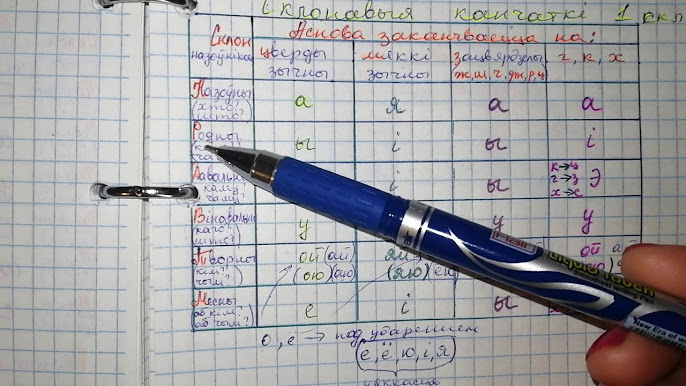 Склонавыя канчаткі 1 скл
Склон назоўніка
Аснова заканчваецца на:
цверды зычны
мяккі зычны
зацвярдзелы ж, ш, ч, дж, р, ц
г, к, х
Назоўны (хто? што?)
а
я
а
а
Родны
ы
і
ы
і
Давальны каму? чаму?
і
ы
к→ц
г→з
х→с
Э
Вінавальны (каго? што?)
у
у
у
Творны (кім? чым?)
ой (ай)
(ою) (аю)
(яю)
ой
Месны аб кім? аб чым?
е
і
ы
о, ё → под ударением
(е, ё, ю, і, я)
Flair
Liquid Touch
New Era of